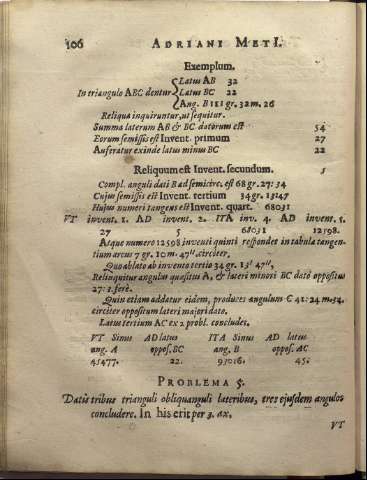 106 ADRIANI METI.
Exemplum.
Latus AB 32
In triangulo ABC dentur Latus BC 22
Ang. B 111 gr. 32 m. 26
Reliqua inquiruntur, ut sequitur.
Summa laterum AB & BC datorum est 54
Eorum semissis est Invent. primum 27
Auferatur exinde latus minus BC 22
Reliquum est Invent. secundum. 5
Compl. anguli dati B ad semicirc. est 68 gr. 27: 34
Cujus semissis est Invent. tertium 34 gr. 13: 47
Hujus numeri tangens est Invent. quart. 68031
VT invent. 1. AD invent. 2. ITA inv. 4. AD invent. 5.
27 5 68031 12598.
Atque numero 12598 inventi quinti respondet in tabula tangen-
tium arcus 7 gr. 10 m. 47''. circiter.
Quo ablato ab invento tertio 34 gr. 13' 47'',
Relinquitur angulus quæsitus A, & lateri minori BC dato oppositus
27: 3. ferè.
Quin etiam addatur eidem, produces angulum C 41: 24 m. 34.
circiter oppositum lateri majori dato.
Latus tertium AC ex 2 probl. concludes.
VT Sinus AD latus ITA Sinus AD latus
ang. A oppos. BC ang. B oppos. AC
45477. 22. 93016. 45.
PROBLEMA 5.
Datis tribus trianguli obliquanguli lateribus, tres ejusdem angulos
concludere. In his erit per 3. ax.
VT